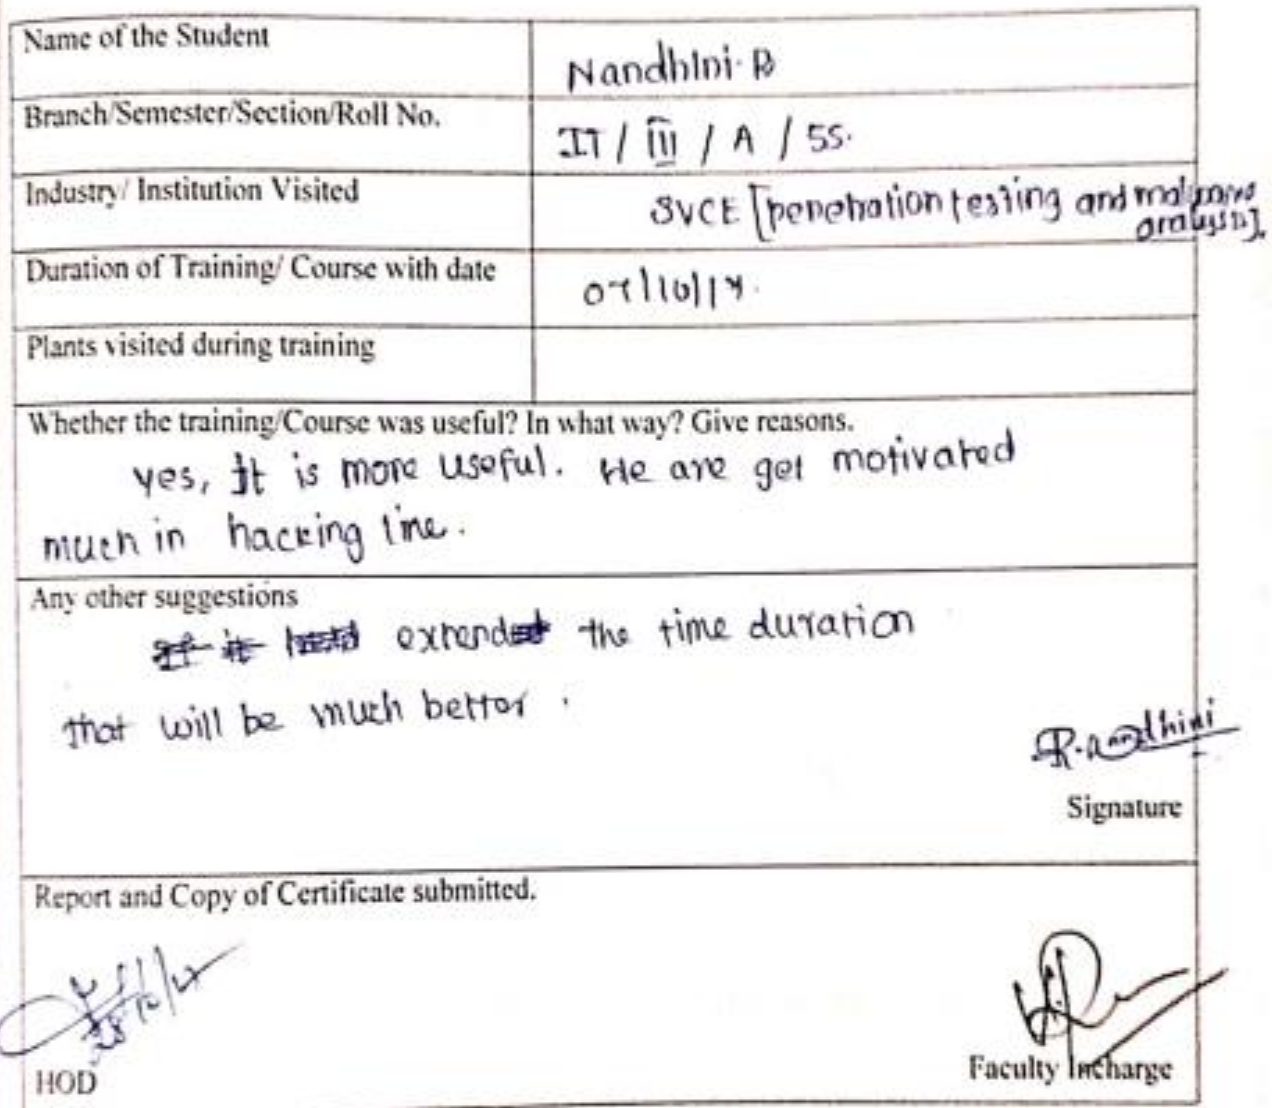 Name of the Student
Nandhini. R
Branch/Semester/Section/Roll No.
IT / III / A / 55.
Industry/ Institution Visited
SVCE [penetration testing and malware
analysis].
Duration of Training/ Course with date
Plants visited during training
Whether the training/Course was useful? In what way? Give reasons.
yes, It is more useful. We are get motivated
much in hacking line.
Any other suggestions
extend the time duration
that will be much better.
R.nandhini
Signature
Report and Copy of Certificate submitted.
HOD
Faculty Incharge